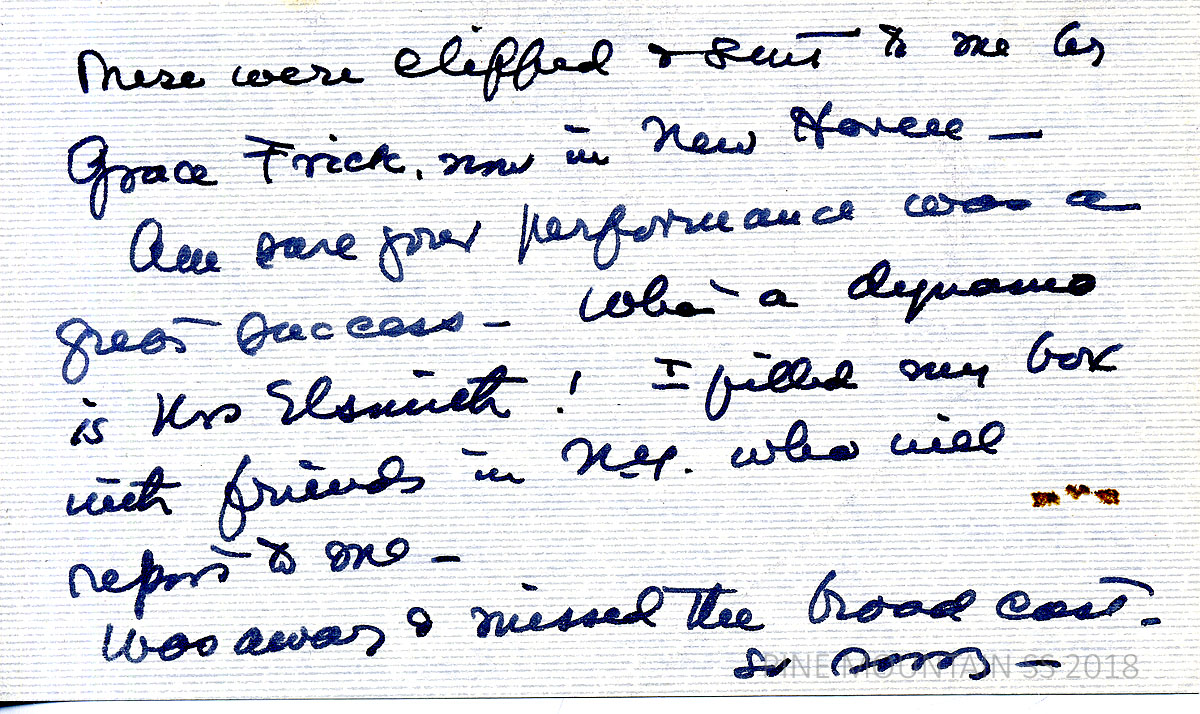 These were clipped & sent to me by
Grace Frick, now in New Haven —
Am sure your performance was a
great success — What a dynamo
is Mrs Elsmith! I filled my box
with friends in N.Y. who will
report to me —
Was away & missed the broad cast.
So sorry —
PINE MOUNTAIN SS 2018